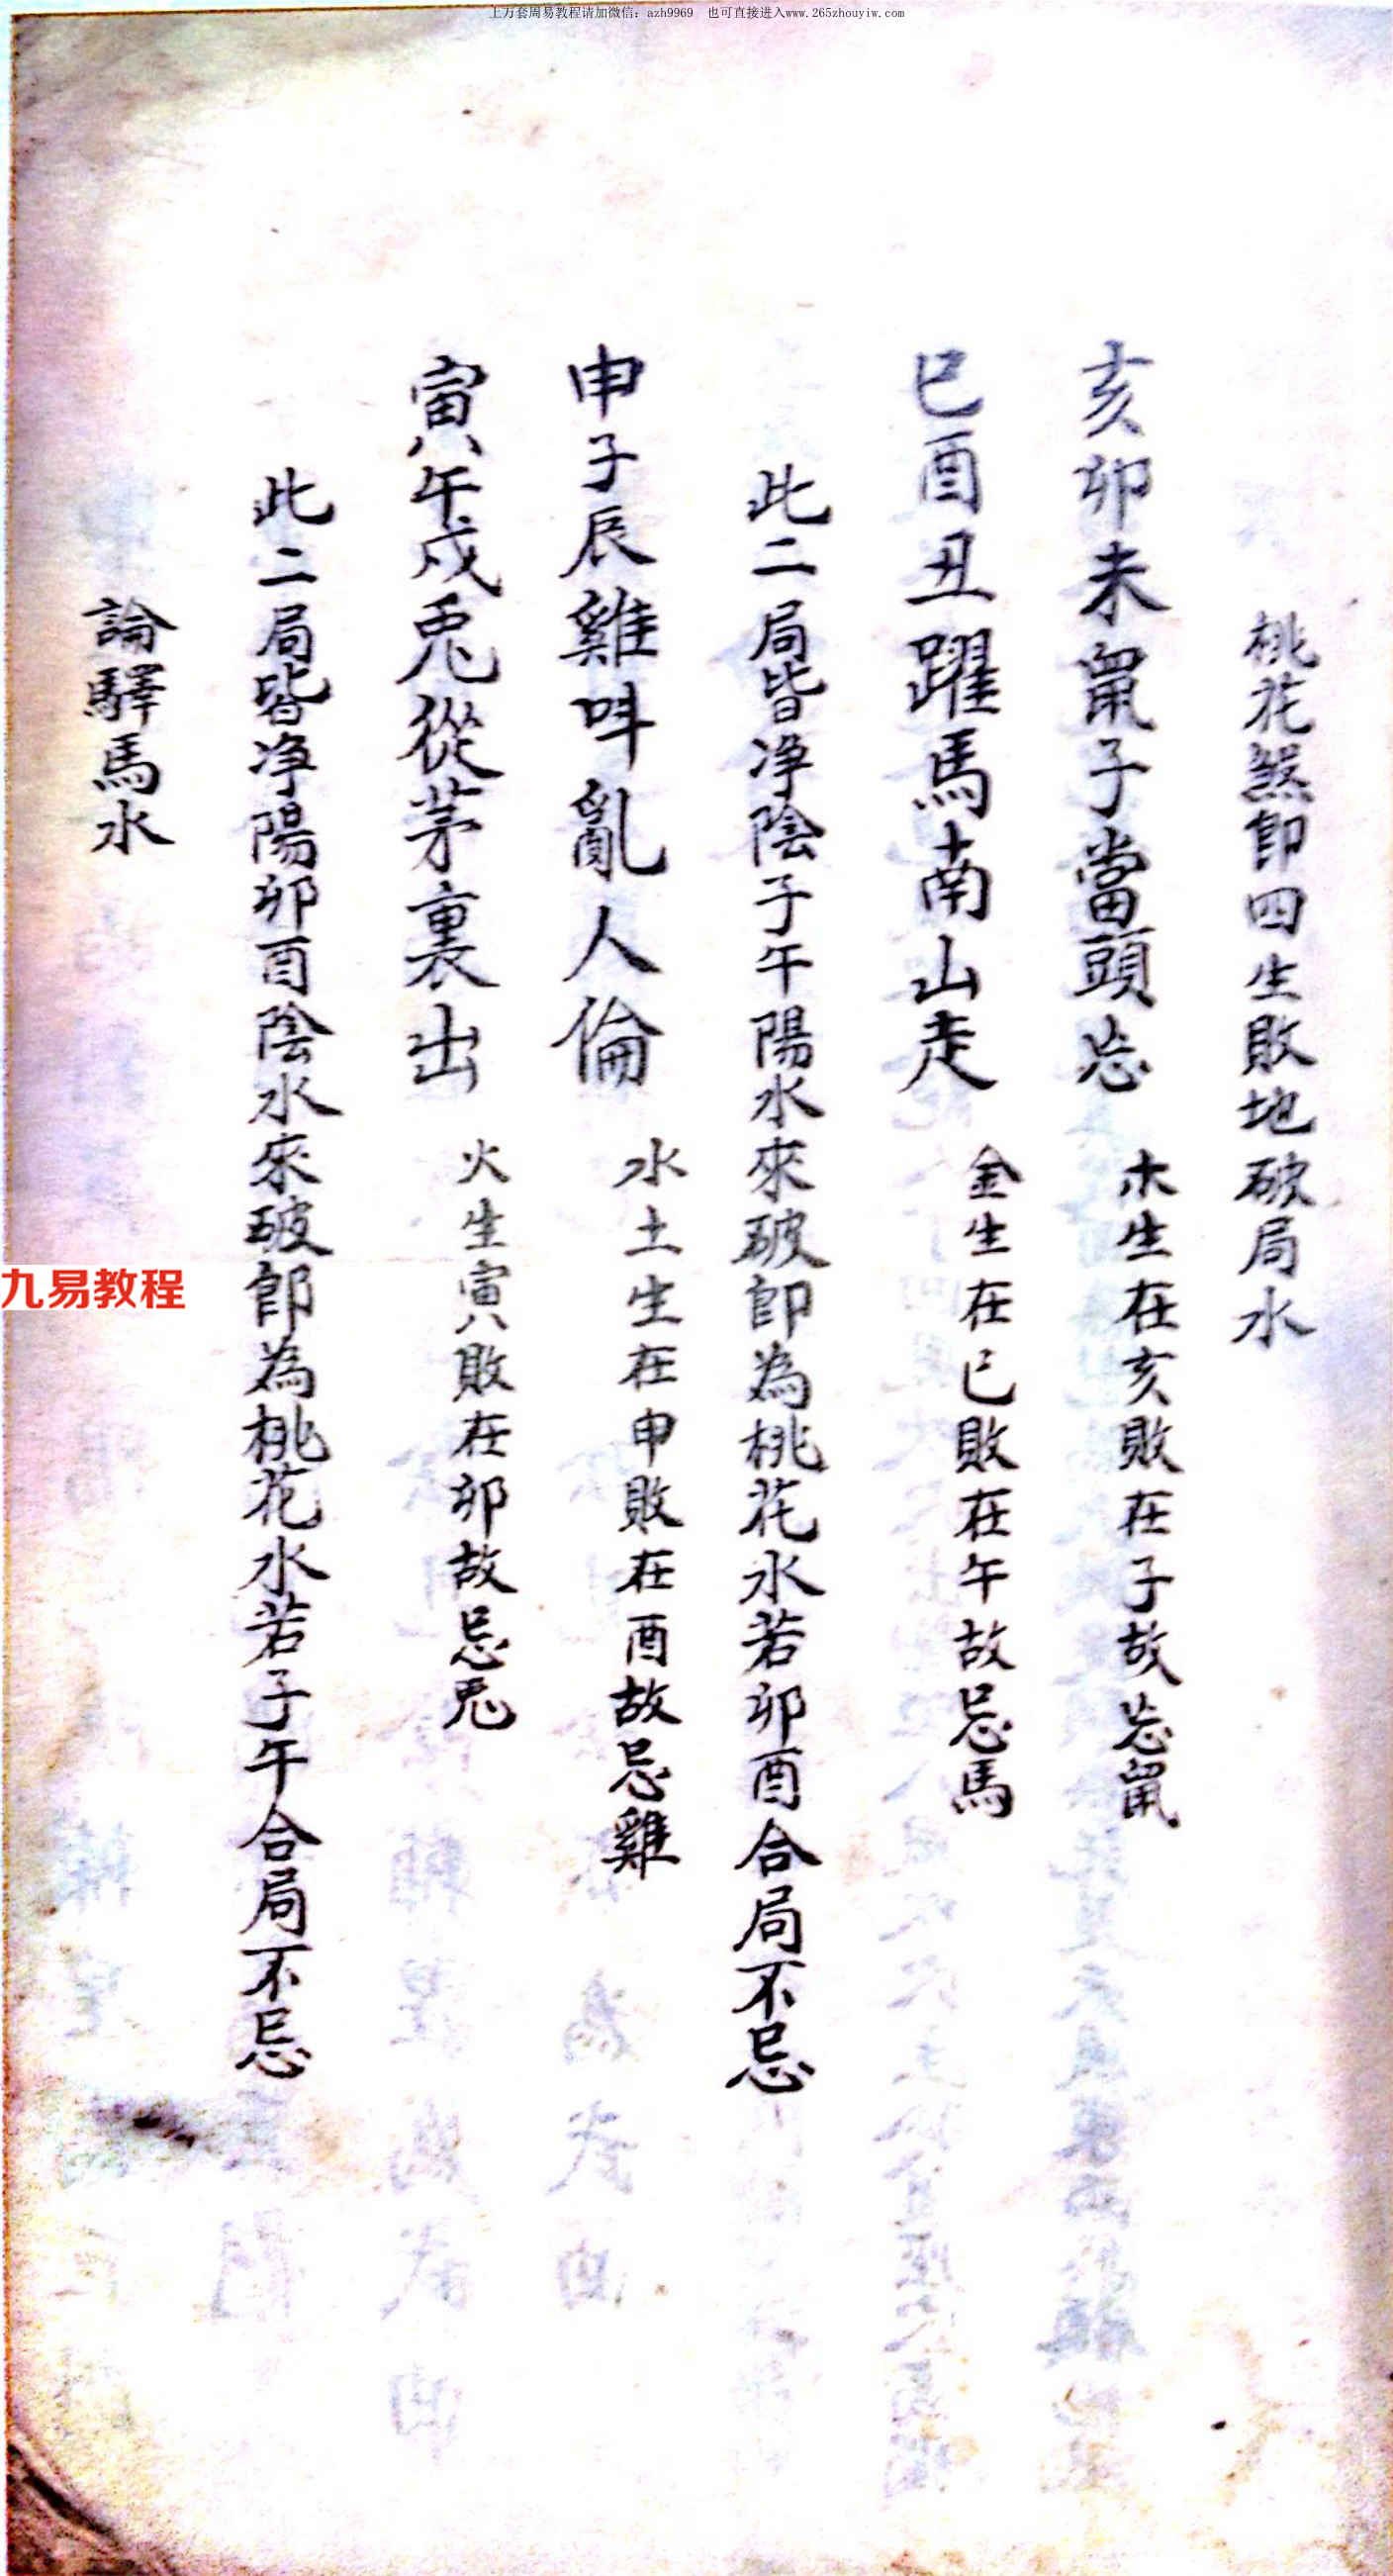 上万套周易教程请加微信：azh9969　也可直接进入www.265zhouyiw.com
桃花煞即四生敗地破局水
亥卯未鼠子當頭忌　木生在亥敗在子故忌鼠
巳酉丑躍馬南山走　金生在巳敗在午故忌馬
此二局皆净陰子午陽水來破即為桃花水若卯酉合局不忌
申子辰雞叫亂人倫　水土生在申敗在酉故忌雞
寅午戌兎從茅裏出　火生寅敗在卯故忌兎
此二局皆净陽卯酉陰水來破即為桃花水若子午合局不忌
論驛馬水
九易教程